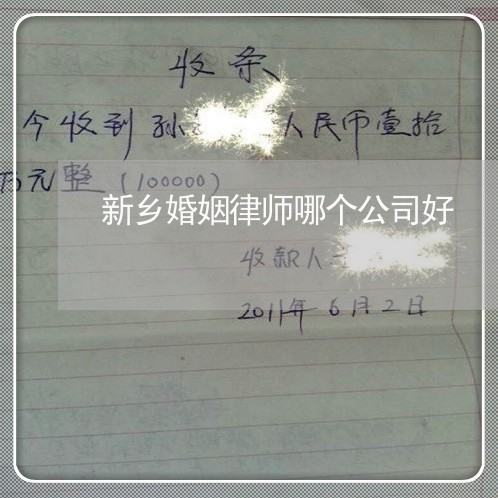 收条
今收到孙 人民币壹拾
万元整(100000)
新乡婚姻律师哪个公司好
收款人
2011年6月2日